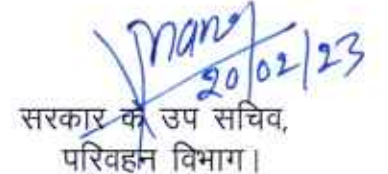 20/02/23
सरकार के उप सचिव,
परिवहन विभाग।